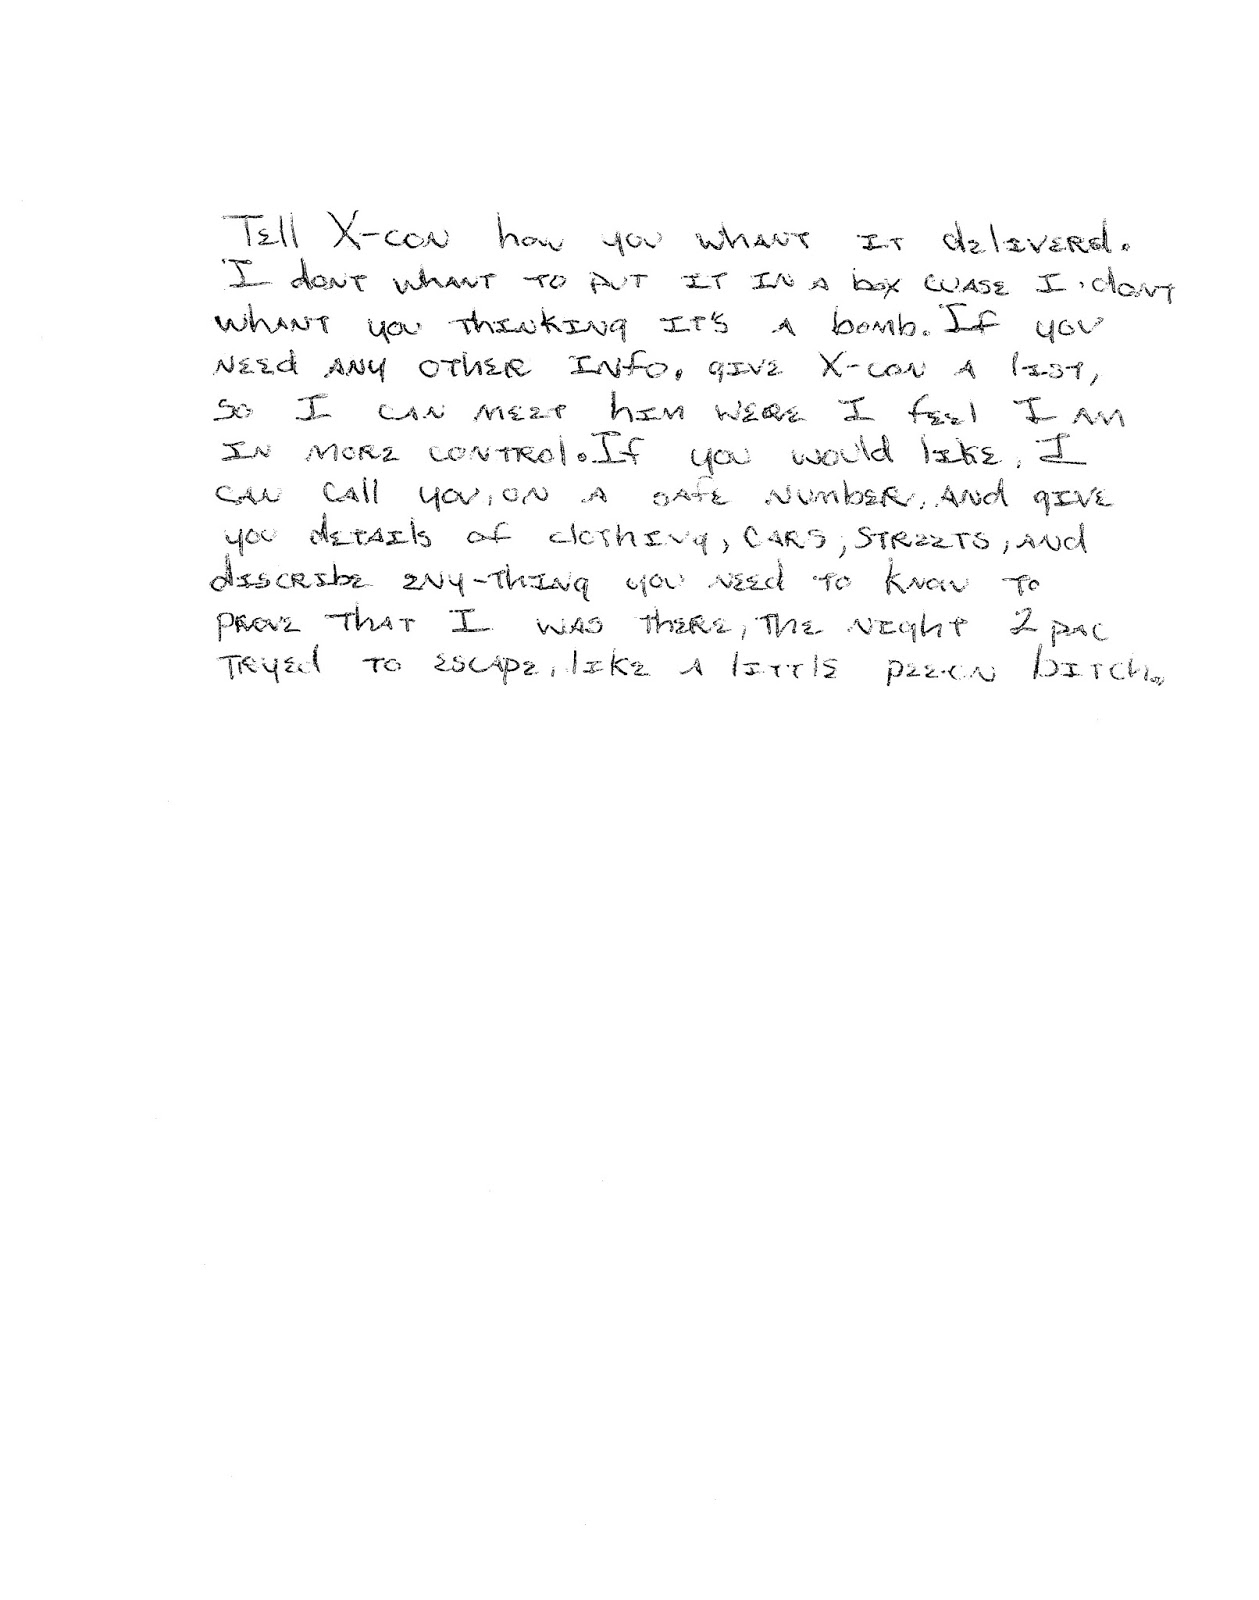 Tell X-con how you whant it deliverd.
I dont whant to put it in a box cuase I dont
whant you thinking it's a bomb. If you
need any other info. give X-con a list,
so I can meet him were I feel I am
in more control. If you would like, I
can call you, on a safe number, and give
you details of clothing, cars, streets, and
discribe eny-thing you need to know to
prove that I was there, the night 2pac
tryed to escape, like a little pee-on bitch.